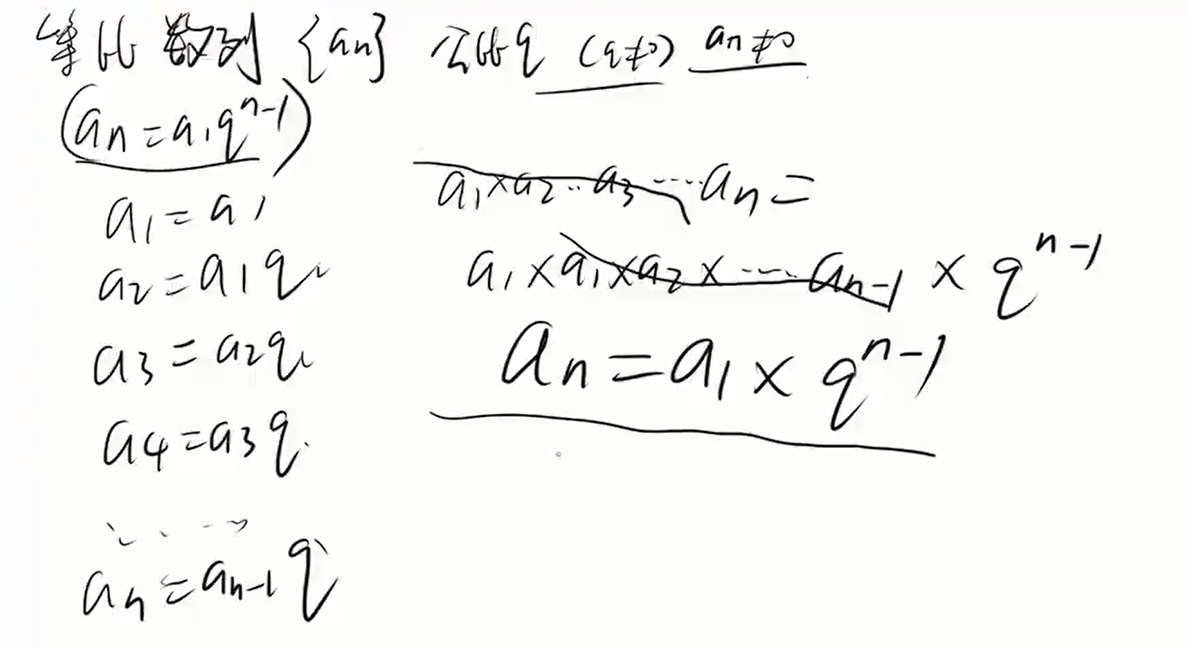 等比数列 {an} 公比q (q≠0) an≠0
(an=a₁qⁿ⁻¹)
a₁=a₁
a₂=a₁q
a₃=a₂q
a₄=a₃q
......
an=an-1 q
a₁×a₂··a₃····an=
a₁×a₁×a₂×····an-1×qⁿ⁻¹
an=a₁×qⁿ⁻¹